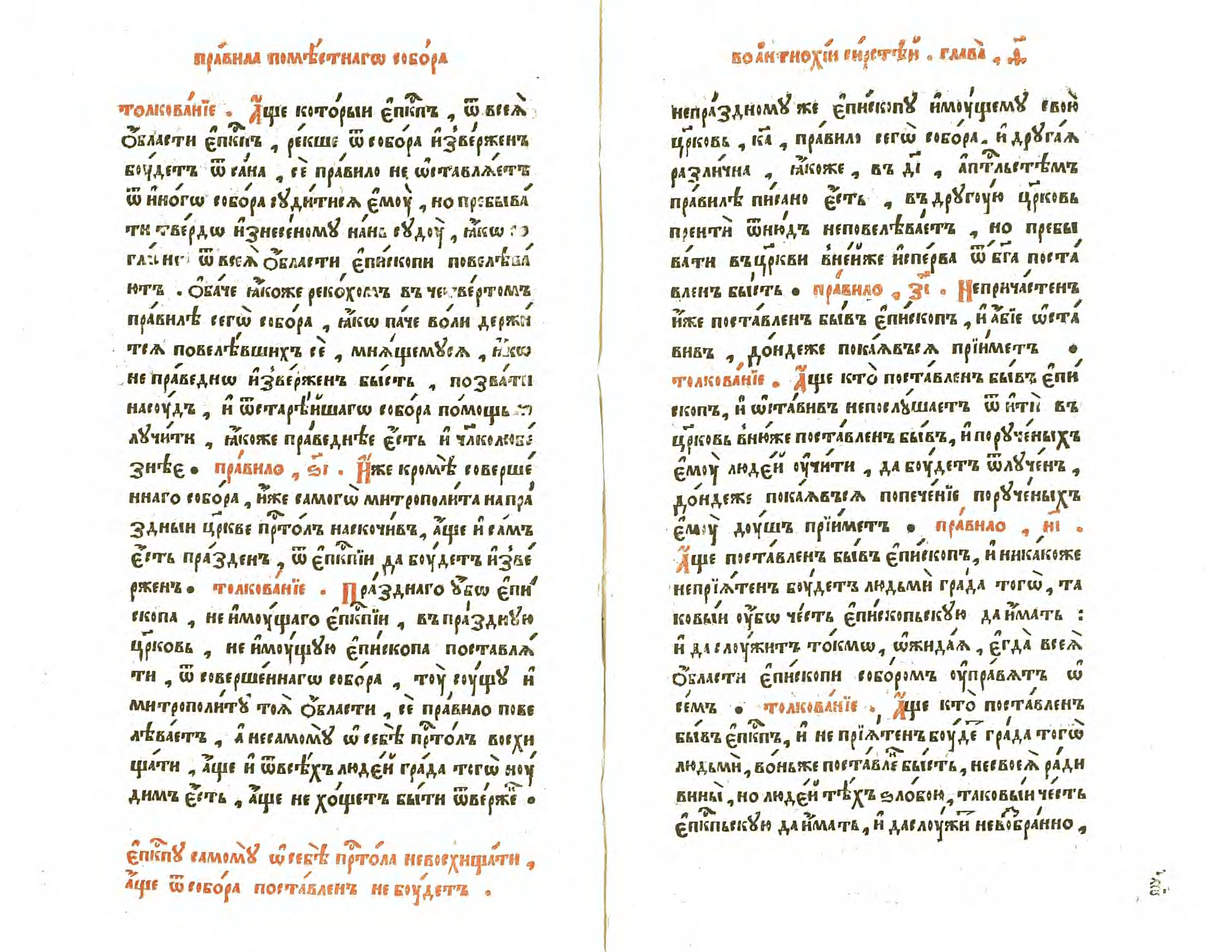 пра́вила помѣ́стнагѡ собо́ра
толкова́нїе . А҆́ще кото́рыи є҆пкⷭ҇пъ , ѿ всеѧ̀
ѻ҆́бласти є҆пкⷭ҇пъ , ре́кше ѿ собо́ра и҆зве́рженъ
боу́детъ ѿ са́на , сѐ пра́вило не ѡ҆ставлѧ́етъ
ѿ и҆но́гѡ собо́ра соуди́тисѧ є҆моу̀ , но пребыва́
ти тве́рдѡ и҆знесе́ному нань соудоу̀ , ꙗ҆́кѡ
ѿ всеѧ̀ ѻ҆́бласти є҆пи́скопи повелѣва́
ютъ . Ѻ҆ба́че ꙗ҆́коже реко́хомъ въ четве́ртомъ
пра́вилѣ сего̀ собо́ра , ꙗ҆́кѡ па́че во́ли держа́
тсѧ повелѣ́вшихъ сѐ , мнѧ́щемусѧ , ꙗ҆́кѡ
не пра́веднѡ и҆зве́рженъ бы́сть , позва́ти
насоу́дъ , и҆ ѿ старѣ́йшаго собо́ра по́мощь
лучи́ти , ꙗ҆́коже пра́веднѣе є҆́сть и҆ чл҃колю́бе
знѣ́е . пра́вило , ѕ҃і . И҆́же кромѣ̀ соверше́
ннаго собо́ра , и҆́же самого̀ митрополи́та напра́
здныи цр҃кве прⷭ҇то́лъ наскочи́въ , а҆́ще и҆ са́мъ
є҆́сть пра́зденъ , ѿ є҆пкⷭ҇пїи да боу́детъ и҆зве́
рженъ . толкова́нїе . Пра́зднаго ᲂу҆́бо є҆пи́
скопа , не и҆моу́щаго є҆пкⷭ҇пїи , въ пра́здную
цр҃ковь , не и҆моу́щую є҆пи́скопа поставлѧ́
ти , ѿ соверше́ннагѡ собо́ра , тоу̀ соу́щу и҆
митрополи́ту тоѧ̀ ѻ҆́бласти , сѐ пра́вило пове
лѣва́етъ , а҆ несамому̀ ѡ҆ себѣ̀ прⷭ҇то́лъ восхи
ща́ти , а҆́ще и҆ ѿ всѣ́хъ люде́й гра́да того̀ ноу́
димъ є҆́сть , а҆́ще не хо́щетъ бы́ти ѿве́рже .
є҆пкⷭ҇пу самому̀ ѡ҆ себѣ̀ прⷭ҇то́ла невосхища́ти ,
а҆́ще ѿ собо́ра поста́вленъ не боу́детъ .
во а҆нтиохі́и си́рстѣй . глава̀ , ѳ҃
непра́здному же є҆пи́скопу и҆моу́щему свою̀
цр҃ковь , ка҃ , пра́вило сегѡ̀ собо́ра . и҆ друга́ѧ
разли́чна , ꙗ҆́коже , въ д҃і , а҆птⷭ҇льстѣмъ
пра́вилѣ пи́сано є҆́сть , въ другоу́ю цр҃ковь
преитѝ ѿню́дъ неповелѣва́етъ , но пребы
ва́ти въ цр҃кви вне́йже и҆спе́рва ѿ бг҃а поста́
вленъ бы́сть . пра́вило , з҃і . Неприча́стенъ
и҆́же поста́вленъ бы́въ є҆пи́скопъ , и҆ а҆́бїе ѡ҆ста́
вивъ , до́ндеже пока́ѧвъсѧ прїи́метъ .
толкова́нїе . А҆́ще кто̀ поста́вленъ бы́въ є҆пи́
скопъ , и҆ ѡ҆ста́вивъ непослу́шаетъ ѿитѝ въ
цр҃ковь вню́же поста́вленъ бы́въ , и҆ пору́ченыхъ
є҆моу̀ люде́й оу҆чи́ти , да боу́детъ ѿлу́ченъ ,
до́ндеже пока́ѧвъсѧ попече́нїе пору́ченыхъ
є҆моу̀ доу́шъ прїи́метъ . пра́вило , и҃і .
А҆́ще поста́вленъ бы́въ є҆пи́скопъ , и҆ ника́коже
непрїѧ́тенъ боу́детъ людьмѝ гра́да тогѡ̀ , та
ковы́и оу҆́бѡ че́сть є҆пи́скопьскую да и҆́мать :
и҆ да слоу́житъ то́кмѡ , ѡ҆жида́ѧ , є҆гда̀ всеѧ̀
ѻ҆́бласти є҆пи́скопи собо́ромъ оу҆пра́вѧтъ ѡ҆
се́мъ . толкова́нїе . А҆́ще кто̀ поста́вленъ
бы́въ є҆пкⷭ҇пъ , и҆ не прїѧ́тенъ боу́де гра́да тогѡ̀
людьмѝ , во ньже поста́вле бы́сть , несвоеѧ̀ ра́ди
вины̀ , но люде́й тѣ́хъ ѕло́бою , таковы́и че́сть
є҆пкⷭ҇пьскую да и҆́мать , и҆ да слоу́жи невозбра́нно ,